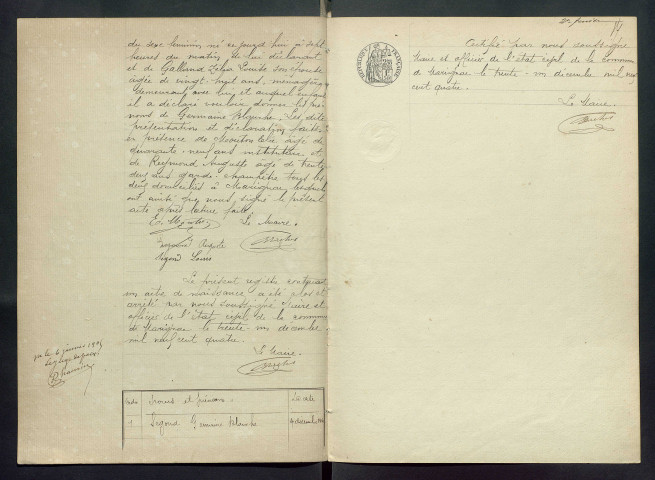 du sexe féminin, né ce jourd'hui à sept
heures du matin, de lui déclarant
et de Galland Zélia Louise son épouse
âgée de vingt-huit ans, ménagère
demeurant avec lui, et auquel enfant
il a déclaré vouloir donner les pré-
noms de Germaine Blanche. Les dites
présentation et déclaration faites
en présence de âgé de
quarante-neuf ans instituteur et
de Reymond Auguste âgé de trente
deux ans garde-champêtre tous les
deux domiciliés à lesquels
ont ainsi que nous signé le présent
acte après lecture faite.
Le Maire
Auguste
Louis
Le présent registre contenant
un acte de naissance a été clos et
arrêté par nous soussigné Maire et
officier de l'état civil de la commune
de le trente-un décembre
mil neuf cent quatre.
Le Maire
Vu le 6 janvier 1905
Le juge de paix
Nos Noms et prénoms. Date
1 Germaine Blanche
Certifié par nous soussigné
Maire et officier de l'état civil de la commune
de le trente-un décembre mil neuf
cent quatre.
Le Maire